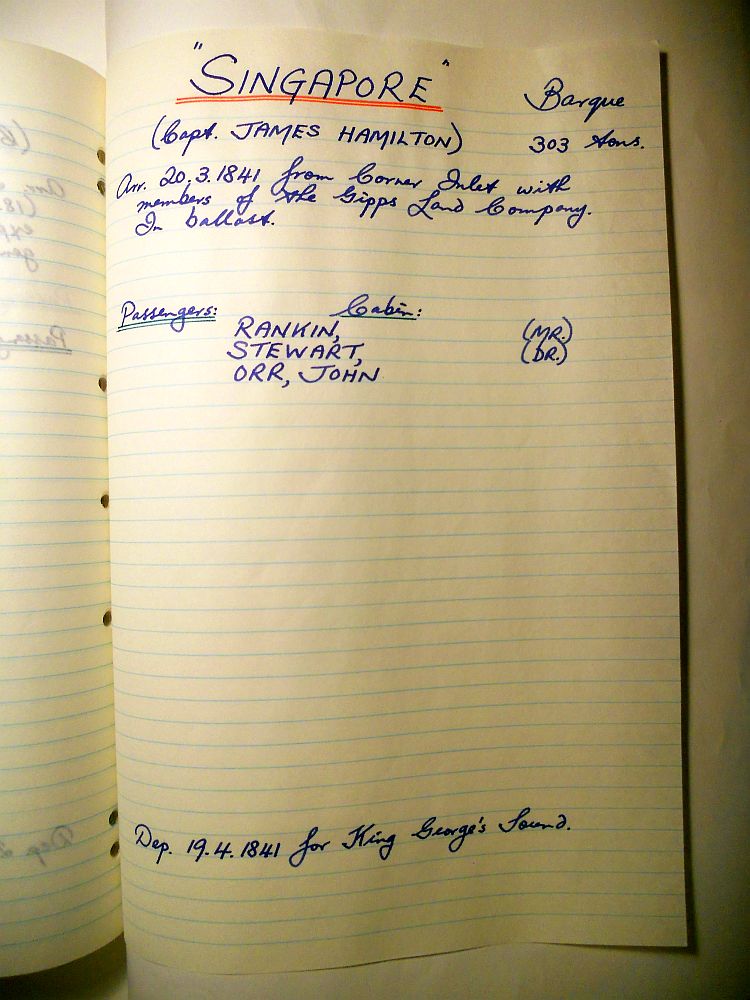 "SINGAPORE" Barque
(Capt. JAMES HAMILTON) 303 tons.
Arr. 20.3.1841 from Corner Inlet with
members of the Gipps Land Company.
In ballast.
Passengers: Cabin:
RANKIN, (MR.)
STEWART, (DR.)
ORR, JOHN
Dep. 19.4.1841 for King George's Sound.